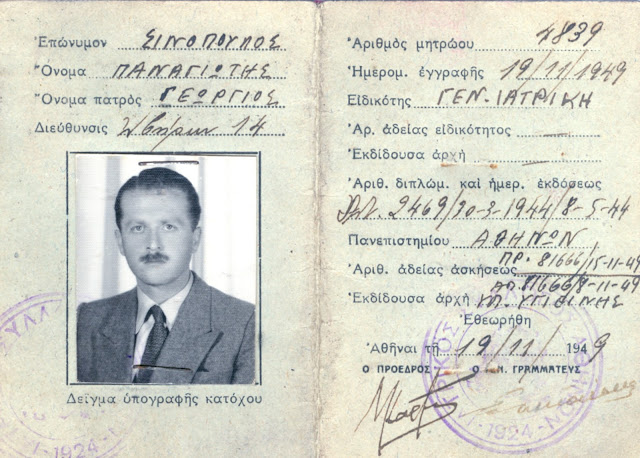 Ἐπώνυμον ΣΙΝΟΠΟΥΛΟΣ
Ὄνομα ΠΑΝΑΓΙΩΤΗΣ
Ὄνομα πατρὸς ΓΕΩΡΓΙΟΣ
Διεύθυνσις 14
Δεῖγμα ὑπογραφῆς κατόχου
Ἀριθμὸς μητρώου 4839
Ἡμερομ. ἐγγραφῆς 19/11/1949
Εἰδικότης ΓΕΝ. ΙΑΤΡΙΚΗ
Ἀρ. ἀδείας εἰδικότητος —
Ἐκδίδουσα ἀρχὴ —
Ἀριθ. διπλώμ. καὶ ἡμερ. ἐκδόσεως
2469/30-3-1944/8-5-44
Πανεπιστημίου ΑΘΗΝΩΝ
ΠΡ. 81666/15-11-49
Ἀριθ. ἀδείας ἀσκήσεως
ΑΠ. 81666/8-11-49
Ἐκδίδουσα ἀρχὴ ΥΠ. ΥΓΙΕΙΝΗΣ
Ἐθεωρήθη
Ἀθῆναι τῇ 19/11/1949
Ο ΠΡΟΕΔΡΟΣ Ο ΓΕΝ. ΓΡΑΜΜΑΤΕΥΣ
ΣΥΛΛΟ
-1924-
-1924-